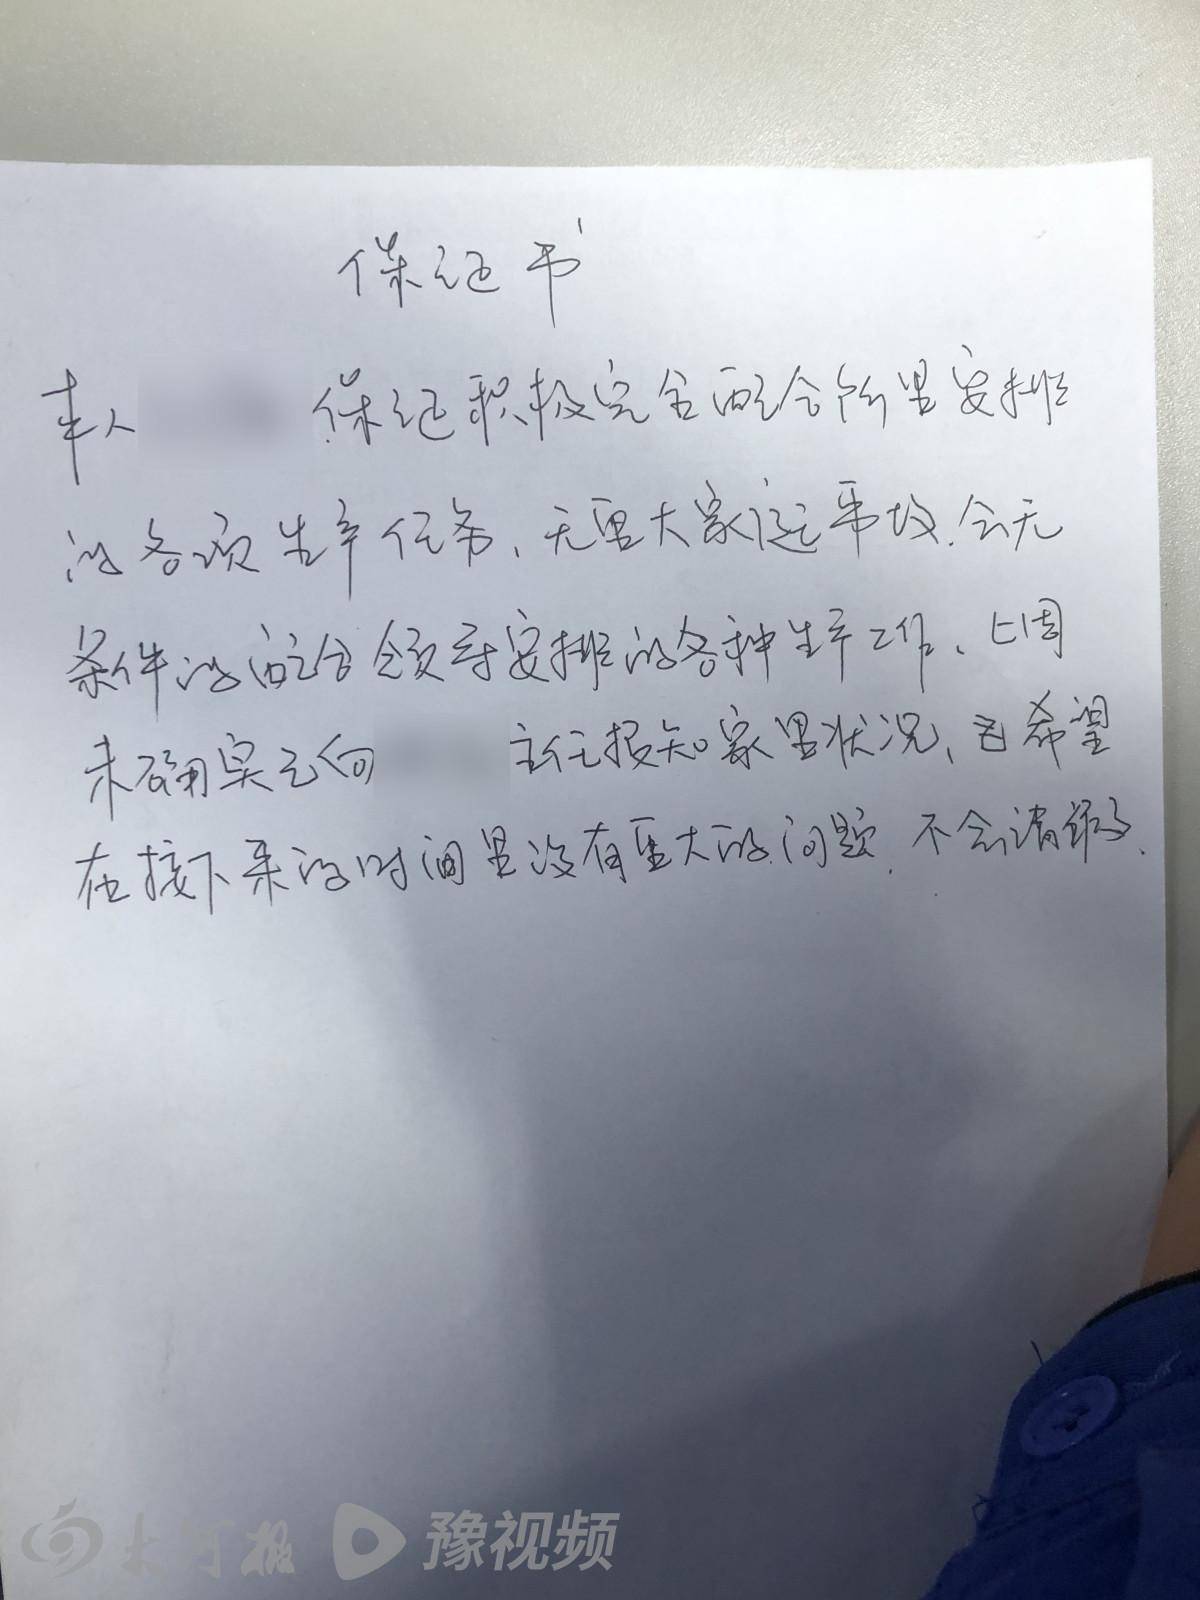 保证书
本人 保证积极完全配合所里安排
的各项生产任务,无里大家 平坟.会无
条件的配合领导安排的各种生产工作、上周
未确实已向 主任报知家里状况,也希望
在接下来的时间里没有重大的问题.不会请假.
大河报 豫视频